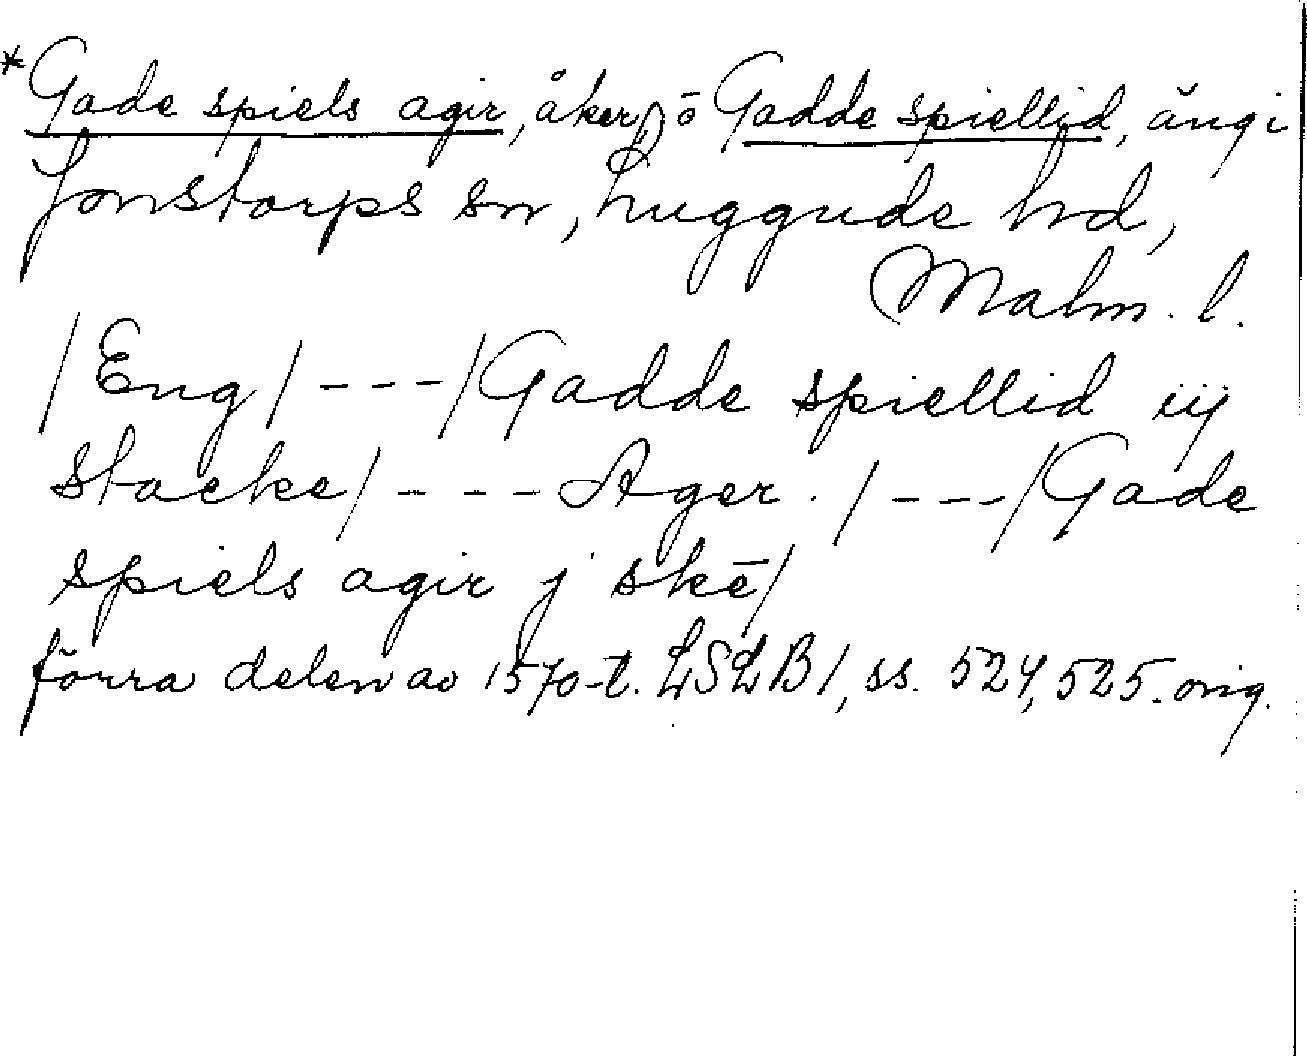 *Gade spiels agir, åker, o Gadde spiellid, äng i
Jonstorps sn, Luggude hd,
Malm. l.
/Eng/ - - - /Gadde spiellid iij
stacke/ - - - Ager . / - - - /Gade
spiels agir j skē/
förra delen av 1570-t. LSLB1, ss. 524, 525. orig.